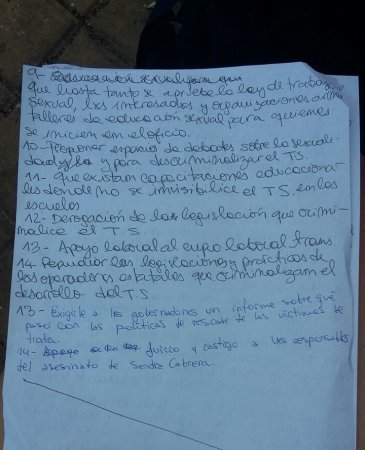 9-
que hasta tanto se apruebe la ley de trabajo
sexual, lxs interesados y organizaciones
talleres de educación sexual para quienes
se inicien en el oficio.
10- Proponer espacios de debates sobre la sexuali-
dad y/o y para descriminalizar el T.S.
11- Que existan capacitaciones educaciona-
les donde no se invisibilice el T.S. en las
escuelas
12- Derogación de las legislación que crimi-
nalice el T.S.
13- Apoyo laboral al cupo laboral trans.
14- Repudiar las legislaciones y prácticas de
los operadores estatales que criminalizam el
desarrollo del T.S.
13- Exigirle a los gobernadores un informe sobre qué
pasó con las políticas de rescate de las víctimas de
trata.
14- Juicio y castigo a los responsables
del asesinato de Sandra Cabrera.